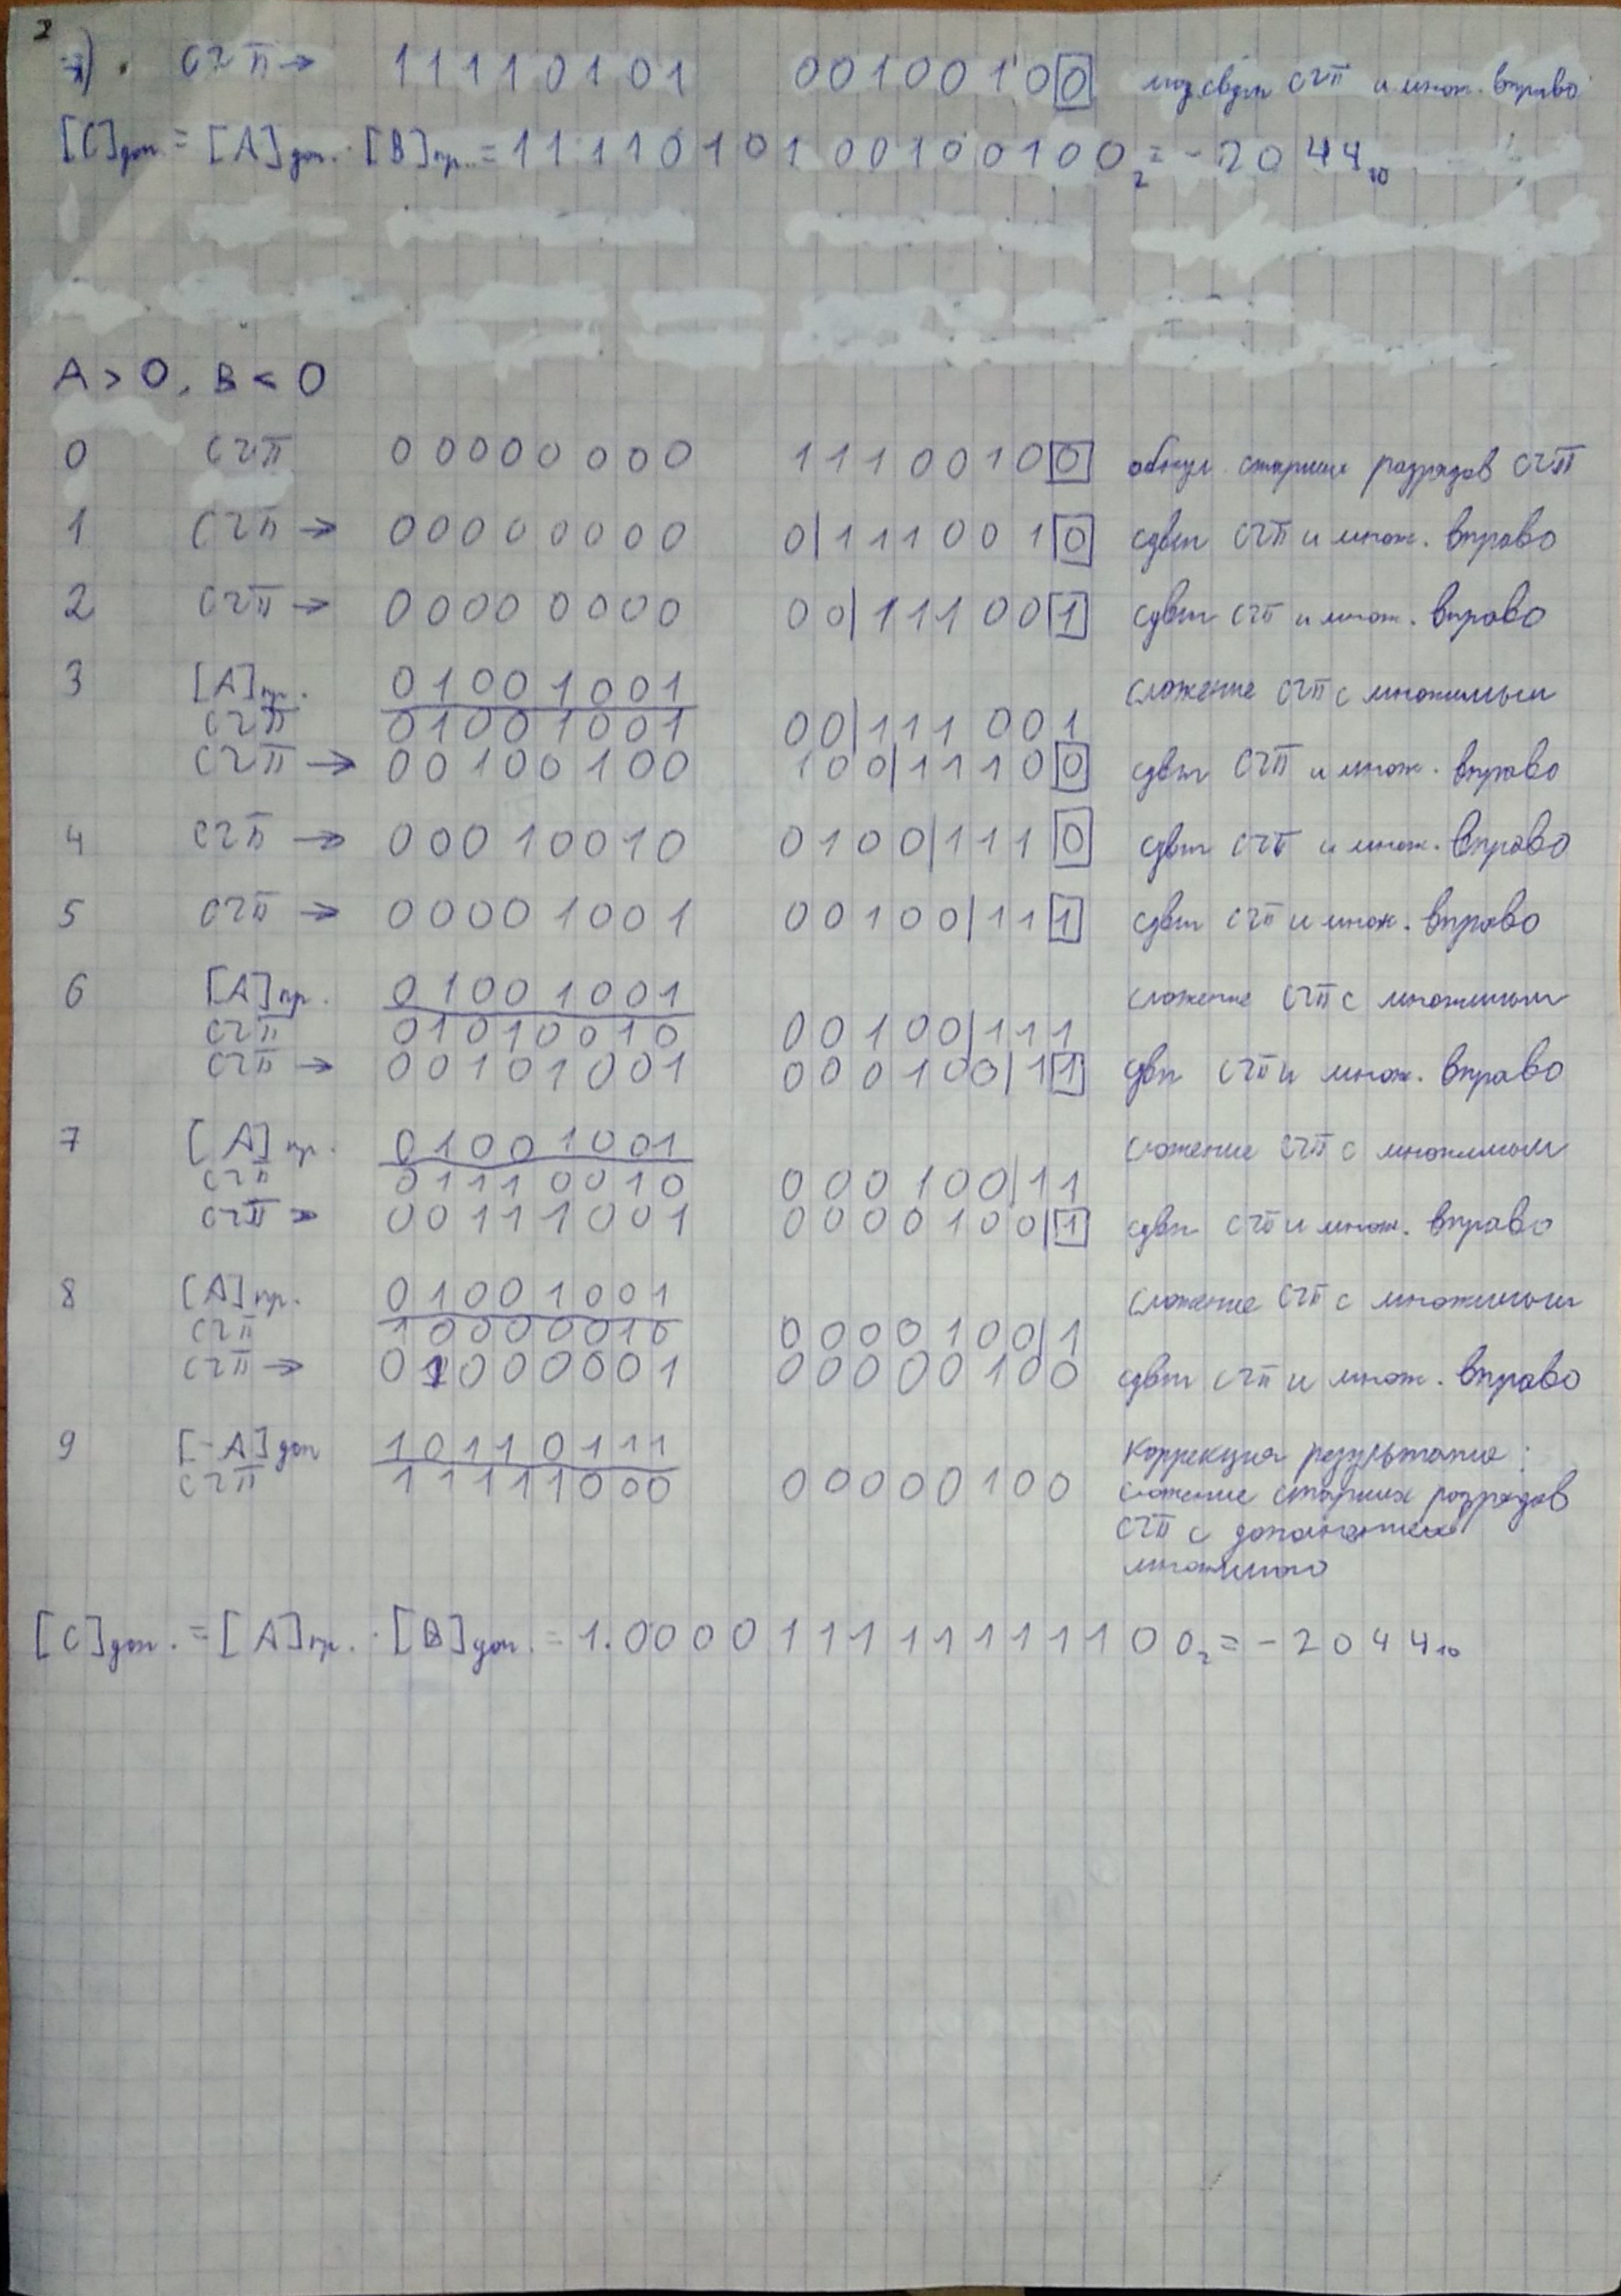 2
СЧП → 11110101 00100100 мод. сдвиг СЧП и множ. вправо
[C]доп. = [A]доп. · [B]пр. = 1111010100100100₂ = -2044₁₀
A > 0, B < 0
0 СЧП 00000000 11100100 обнул. старших разрядов СЧП
1 СЧП → 00000000 0|1110010 сдвиг СЧП и множ. вправо
2 СЧП → 00000000 00|111001 сдвиг СЧП и множ. вправо
3 [A]пр. 01001001 сложение СЧП с множимым
СЧП 01001001 00|111001
СЧП → 00100100 100|11100 сдвиг СЧП и множ. вправо
4 СЧП → 00010010 0100|1110 сдвиг СЧП и множ. вправо
5 СЧП → 00001001 00100|111 сдвиг СЧП и множ. вправо
6 [A]пр. 01001001 сложение СЧП с множимым
СЧП 01010010 00100|111
СЧП → 00101001 000100|11 сдвиг СЧП и множ. вправо
7 [A]пр. 01001001 сложение СЧП с множимым
СЧП 01110010 000100|11
СЧП → 00111001 0000100|1 сдвиг СЧП и множ. вправо
8 [A]пр. 01001001 сложение СЧП с множимым
СЧП 10000010 0000100|1
СЧП → 01000001 00000100 сдвиг СЧП и множ. вправо
9 [-A]доп 10110111 Коррекция результата:
СЧП 11111000 00000100 сложение старших разрядов
СЧП с дополнением
множимого
[C]доп. = [A]пр. · [B]доп. = 1.000011111111100₂ = -2044₁₀